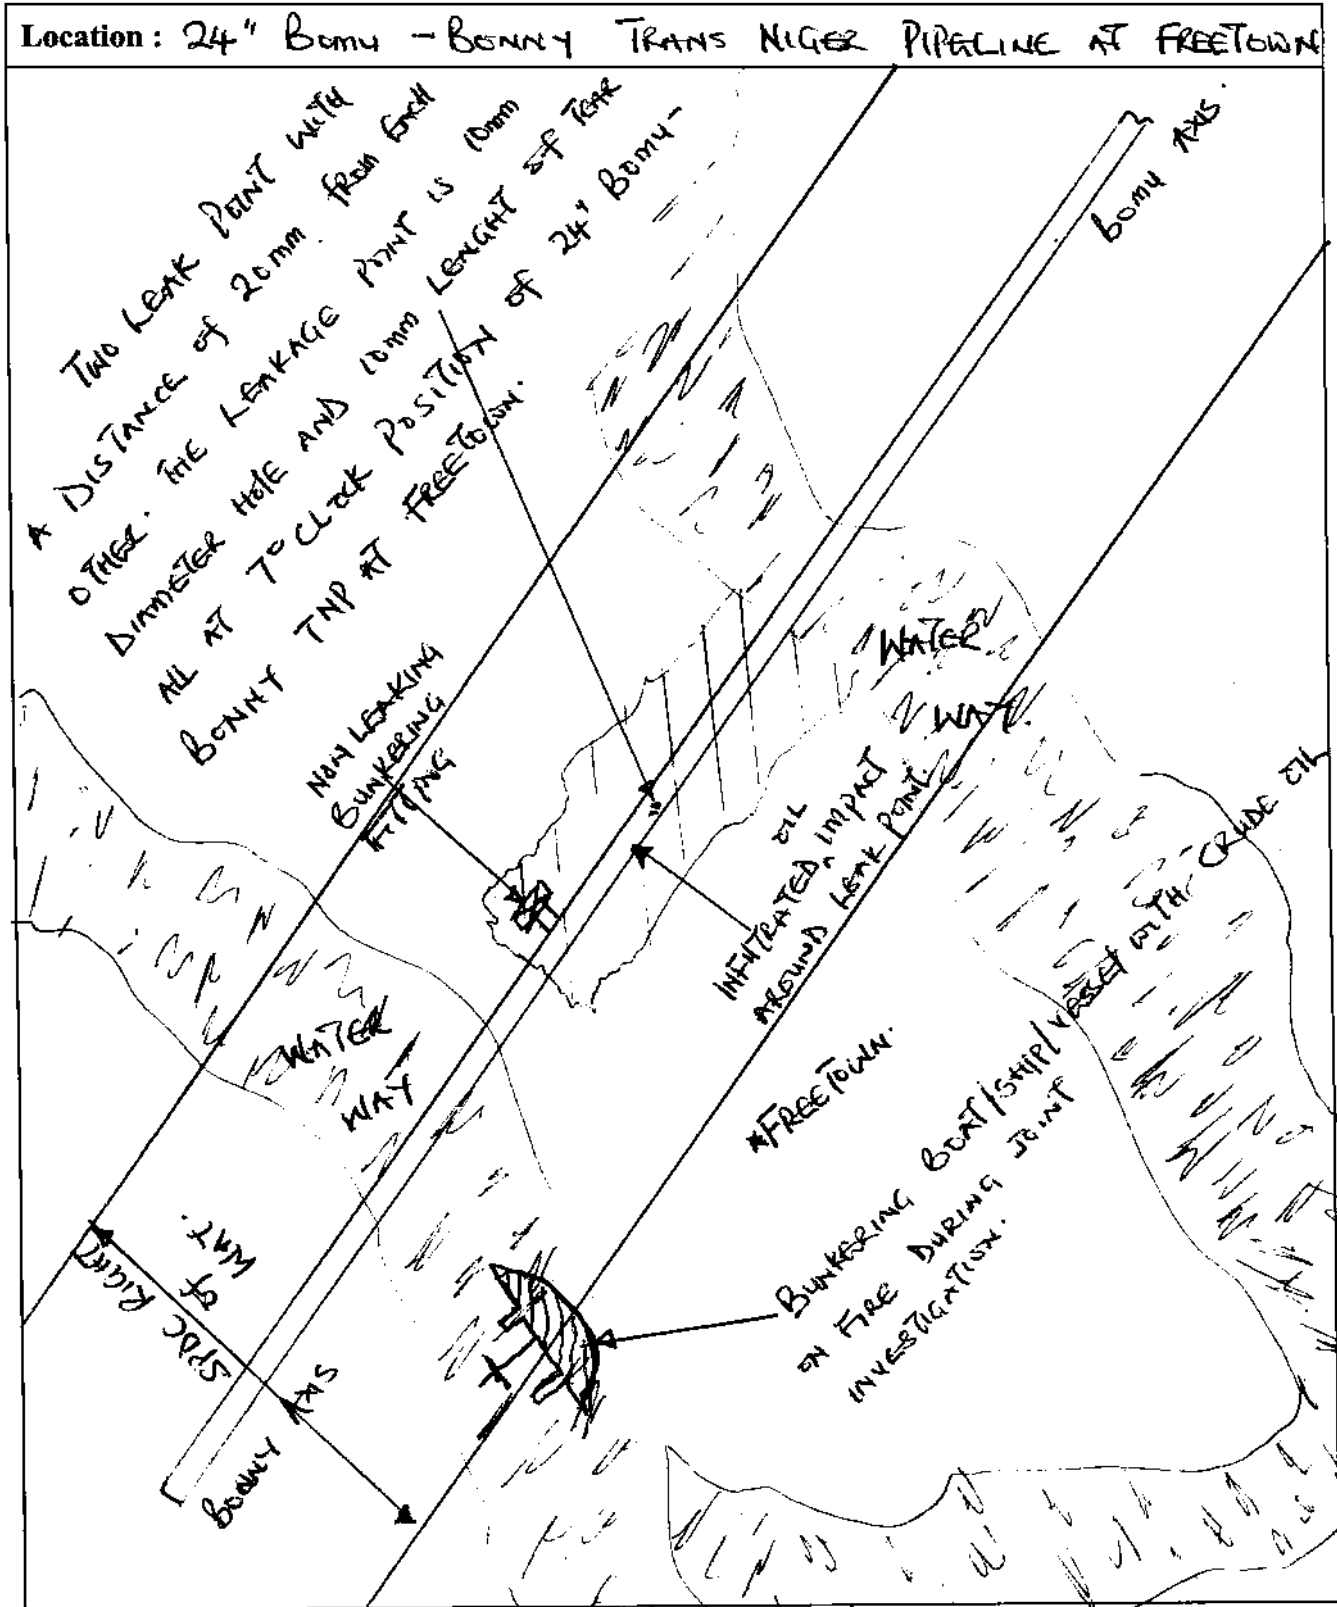 Location : 24" BOMU - BONNY TRANS NIGER PIPELINE AT FREETOWN
TWO LEAK POINT WITH
A DISTANCE of 20mm from EACH
OTHER. THE LEAKAGE POINT IS 10mm
DIAMETER HOLE AND 10mm LENGHT of TEAR
ALL AT 7O CLOCK POSITION of 24" BOMU-
BONNY TNP AT FREETOWN.
BOMU AXIS.
NON LEAKING
BUNKERING
FITTING
WATER
WAY.
INFILTRATED OIL IMPACT
AROUND LEAK POINT.
WATER
WAY
*FREETOWN.
BUNKERING BOAT/SHIP/VESSEL WITH CRUDE OIL
ON FIRE DURING JOINT
INVESTIGATION.
SPDC RIGHT
of WAY.
BONNY AXIS